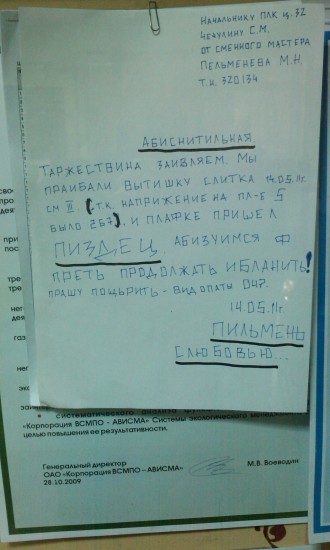 Начальнику плк ц. 32
Чечулину С.М.
от сменного мастера
Пельменева М.Н.
Т.н. 320134
Абиснитильная
Таржествина заивляем. Мы
праибали вытишку слитка 14.05.11г.
см II (т.к. наприжение на пл-е 5
было 267). и плафке пришел
ПИЗДЕЦ. Абизуимся ф
преть продолжать ибланить!
прашу пощьрить - вид опаты 047.
14.05.11г
ПИЛЬМЕНЬ
СЛЮБОВЬЮ...
систематического анализа
«Корпорация ВСМПО - АВИСМА» Системы экологического
целью повышения ее результативности.
Генеральный директор
ОАО «Корпорация ВСМПО – АВИСМА»
М.В. Воеводин
28.10.2009